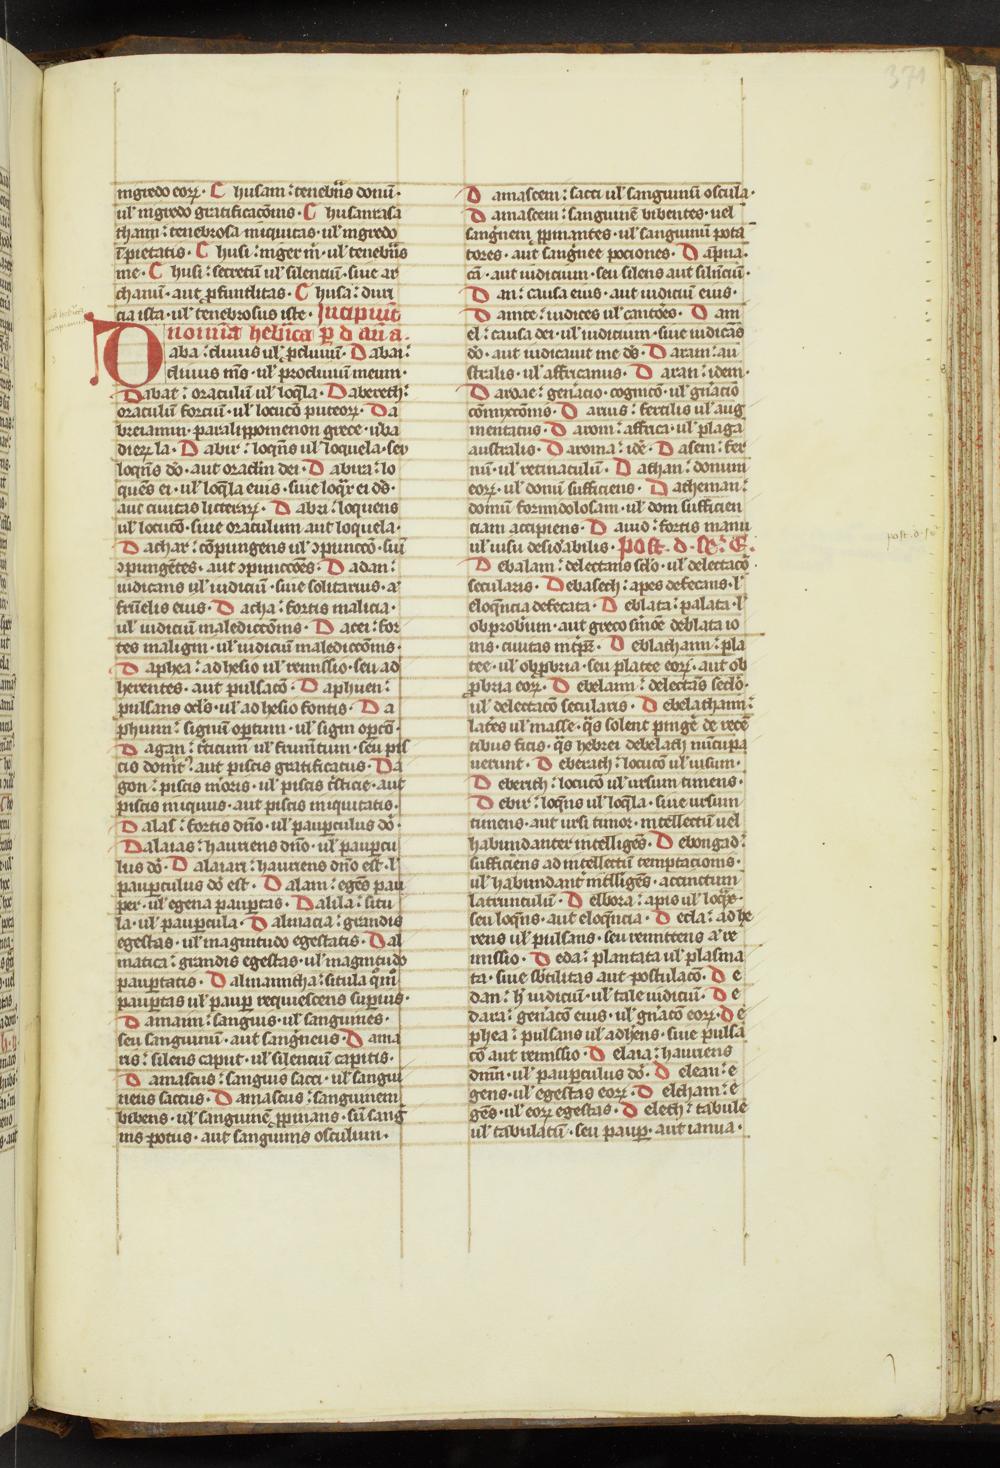 371
nigredo eoꝝ · C husam : tenebrꝰis donū ·
ul̓ nigredo gratificacōnis · C husanrasa
thaim : tenebrosa iniquitas · ul̓ nigredo
īpietatis · C husi : niger m̓ · ul̓ tenebris
me · C husi : secretū ul̓ silenciū · siue ar
chanū · aut ꝓfunditas · C husa : duri
cia ista · ul̓ tenebrosus iste · Incipiūt
noīa hebͣica ꝑ d añ a ·
Daba : cliuus ul̓ ꝓcliuiū · Dabai :
cliuus m̄s · ul̓ procliuiū meum ·
Dabar : oraculū ul̓ loq̄la · Dabereth :
oraculū forciū · ul̓ locucō puteoꝝ · Da
breiamin · paralippomenon grece · uba
dieꝝ la · Dabir : loqn̄s ul̓ loquela · seu
loqn̄s dō · aut oraclm dei · Dabira : lo
quēs ei · ul̓ loq̄la eius · siue loqr̄ ei ds̄ ·
aut ciuitas litteraꝝ · Dabri : loquens
ul̓ locucō · siue oraculum aut loquela ·
Dachar : cōpungens ul̓ ꝯpunccō · siū
ꝯpungētes · aut ꝯpunccōes · Dadan :
iudicans ul̓ iudiciū · siue solitarius · a
fruelis eius · Dacha : fortis malicia ·
ul̓ iudiciū malediccōnis · Dacei : for
tes maligni · ul̓ iudiciū malediccōnis ·
Daphca : adhesio ul̓ remissio · seu ad
herentes · aut pulsacō · Daphuen :
pulsans ocl̓s · ul̓ adhesio fontis · Da
phuim : signū optum · ul̓ signi opcō ·
Dagan : tͥticum ul̓ frumtum · seu pis
cis · aut piscis gratificatus · Da
gon : piscis meroris · ul̓ piscis tͥsticie · aut
piscis iniquus · aut piscis iniquitatis ·
Dalas : fortis dn̄o · ul̓ pauꝑculus dō ·
Dalaias : hauriens dn̄o · ul̓ pauꝑcu
lus dō · Dalaiari : hauriens dn̄o est · l̓
pauꝑculus dō est · Dalam : egēs pau
per · ul̓ egena pauꝑtas · Dalila : situ
la · ul̓ pauꝑcula · Dalmacia : grandis
egestas · ul̓ magnitudo egestatis · Dal
matica : grandis egestas · ul̓ magnitudo
pauꝑtatis · Dalmanutha : situla
pauꝑtas ul̓ pauꝑ requiescens suꝑius ·
Damaim : sanguis · ul̓ sanguines ·
seu sanguinū · aut sangͥneus · Dama
ris : silens caput · ul̓ silenciū capitis ·
Damascus : sanguis sacci · ul̓ sangui
neus saccus · Damascus : sanguinem
bibens · ul̓ sanguinē ꝓpinans · siū sang
nis potus · aut sanguinis osculum ·
Damascem : sacci ul̓ sanguinū oscula ·
Damasceni : sanguinē bibentes · uel
sangͥnem ꝓpinantes · ul̓ sanguinū pota
tores · aut sangͥnee pociones · Dampna ·
cā · aut iudicium · seu silens aut silnciū ·
Dan : causa eius · aut iudiciū eius ·
Danite : iudices ul̓ cautōes · Dani
el : causa dei · ul̓ iudicium · siue iudicās
dō · aut iudicauit me ds̄ · Daram : au
stralis · ul̓ affricanus · Daran : idem ·
Dardae : gen̄acio · cognicō · ul̓ gn̄acio
cōmixcōnis · Darius : fertilis ul̓ aug
mentatus · Darom : affrica · ul̓ plaga
australis · Daroma : idē · Dasem : fer
nū · ul̓ retinaculū · Dathan : donum
eoꝝ · ul̓ donū sufficiens · Datheman :
domū formidolosam · ul̓ dom sufficien
ciam accipiens · Dauid : fortis manu
ul̓ uisu desid̓abilis · post · d · seq̄ · E ·
Debalam : delectans sclo · ul̓ delectacō
secularis · Debasech : apes defecans · l̓
eloqncia defecata · Deblata : palata · l̓
obprobrium · aut greco sermōe deblata io
nis · ciuitas · Deblathaim : pla
tee · ul̓ obꝑbria · seu platee eoꝝ · aut ob
ꝓbria eoꝝ · Debelaim : delectās seclo ·
ul̓ delectacō secularis · Debelathaim :
lates ul̓ masse · qͣs solent pingē de recē
tibus ficis · qͣs hebrei debelath nūcupa
uerunt · Debeir : locucō ul̓ uisum ·
Debeiith : locucō ul̓ ursum timens ·
Debir : loqn̄s ul̓ loq̄la · siue ursum
timens · aut ursi timor · intellectū uel
habundanter intelligēs · Debongad :
sufficiens ad intellectū temptacionis ·
ul̓ habundant̓ intelligēs · accinctum
latrunculū · Delbora : apis ul̓ loqr̄ ·
seu loqn̄s · aut eloqncia · Decla : adhe
rens ul̓ pulsans · seu remittens a re
missio · Deda : plantata ul̓ plasma
ta · siue sbtilitas aut postulacō · De
dan : h̓ iudiciū · ul̓ tale iudiciū · De
dara : gen̄acō eius · ul̓ gn̄acō eoꝝ · De
phca : pulsans ul̓ adhens · siue pulsa
cō aut remissio · Delaia : hauriens
dnm · ul̓ pauꝑculus dō · Deleaii : e
gens · ul̓ egestas eoꝝ · Delcham : e
gēs · ul̓ eoꝝ egestas · Deleth : tabule
ul̓ tabulatū · seu pauꝑ · aut ianua ·